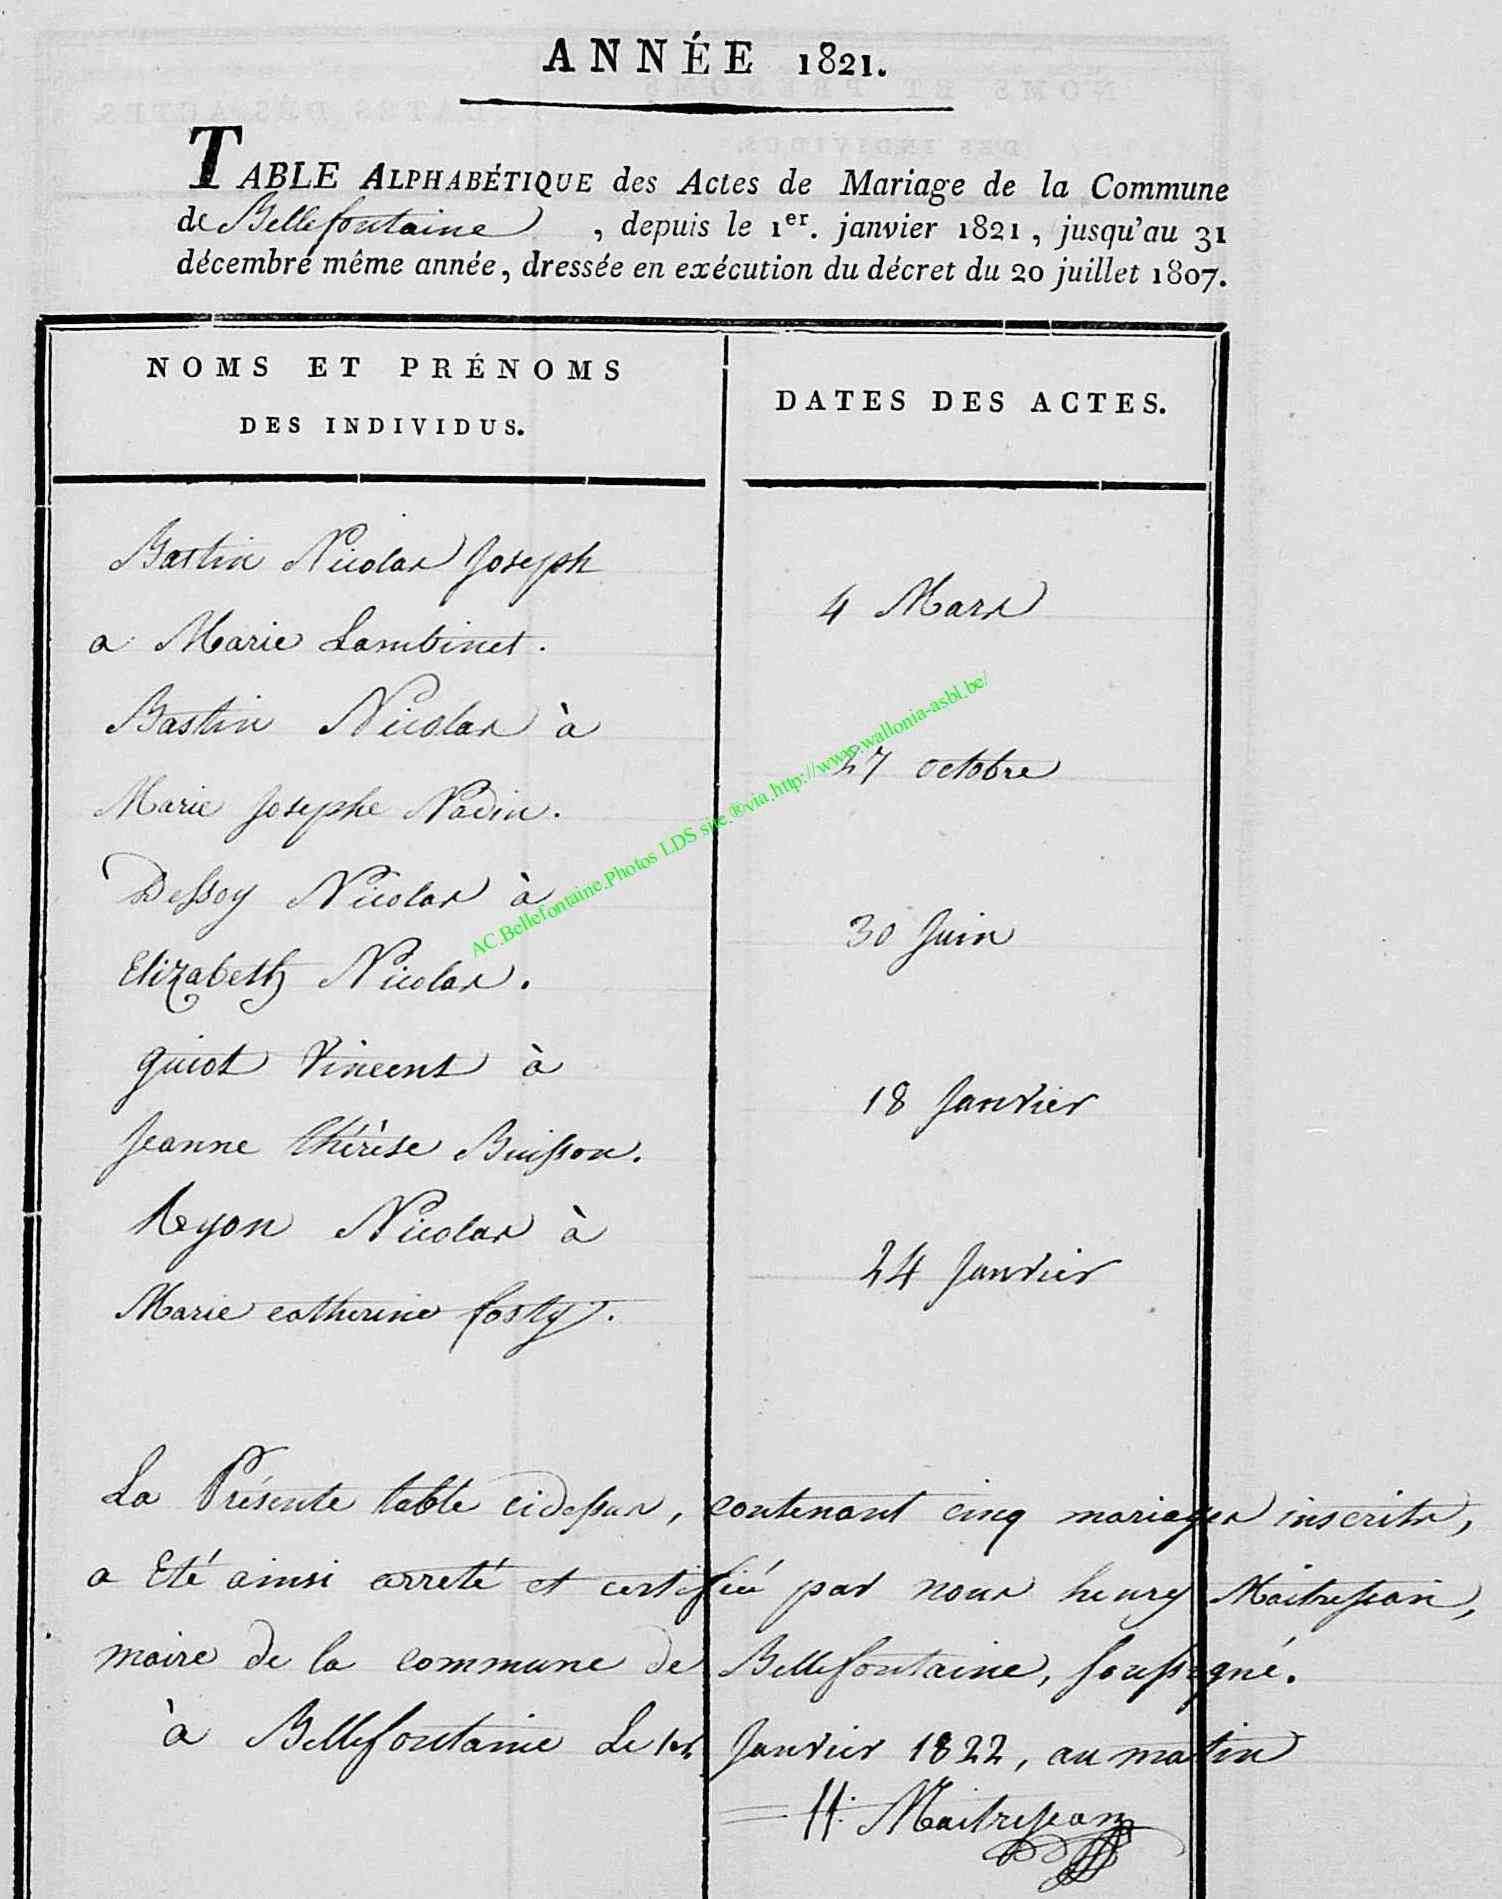 ANNÉE 1821.
TABLE ALPHABÉTIQUE des Actes de Mariage de la Commune
de Bellefontaine , depuis le 1er. janvier 1821, jusqu'au 31
décembre même année, dressée en exécution du décret du 20 juillet 1807.
NOMS ET PRÉNOMS
DES INDIVIDUS.
DATES DES ACTES.
Bastin Nicolas Joseph
a Marie Lambinet.
4 Mars
Bastin Nicolas à
Marie Josephe Nadin.
27 octobre
Dessoy Nicolas à
Elizabeth Nicolas.
30 Juin
guiot Vincent à
Jeanne thérèse Buisson.
18 Janvier
Nicolas à
Marie catherine fosty.
24 Janvier
La Présente table cidessus, contenant cinq mariages inscrits,
a Eté ainsi arreté et certifiée par nous henry Maitrejean,
maire de la commune de Bellefontaine, soussigné.
à Bellefontaine Le 1er Janvier 1822, au matin
H. Maitrejean
AC.Bellefontaine.Photos LDS site.®via.http://www.wallonia-asbl.be/